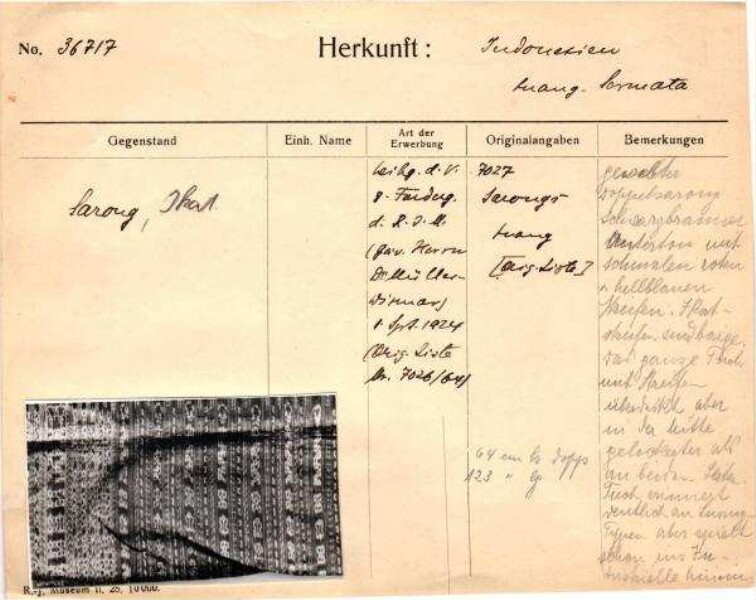 No. 36717
Herkunft:
Indonesien
Luang. Sermata
Gegenstand
Einh. Name
Art der Erwerbung
Originalangaben
Bemerkungen
Sarong, Ikat
Leihg. d. V.
z. Förderg.
d. R. J. M.
(Gav. Herrn
Dr Müller-
Wismar)
Spt. 1924
(Orig. Liste
Nr. 7026/64)
7027
Sarongs
Luang
[Orig. Liste]
64 cm br. dopp
123 " lg
gewebter
Doppelsarong
schwarzbrauner
Unterton mit
schmalen roten
u hellblauen
Streifen. Ikat-
streifen sind beige.
Das ganze Tuch
mit Streifen
überdeckt aber
in der Mitte
gelockerter als
an beiden
Tuch erinnert
deutlich an Luang
Typen aber spielt
schon ins In-
dustrielle hinein
R.-J. Museum II. 25, 10000.